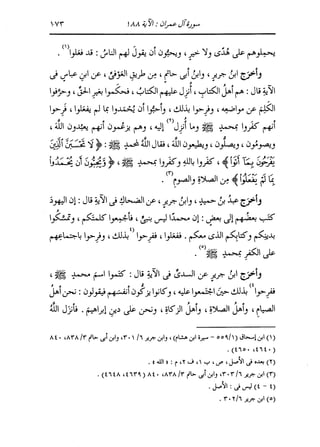 سورة آل عمران : الآية ١٨٨ ١٧٣
يحملوهم على هُدًى ولا خيرٍ ، ويحبُّون أن يقولَ لهم الناسُ : قد فعَلوا(١) .
وأخرَج ابنُ جريرٍ ، وابنُ أبى حاتمٍ ، من طريقِ العَوْفىِّ ، عن ابنِ عباسٍ فى
الآيةِ قال : هم أهلُ الكتابِ ، أُنزِل عليهم الكتابُ ، فحكَموا بغيرِ الحقِّ ، وحرَّفوا
الكَلِمَ عن مواضعِه ، وفرِحوا بذلك ، وأحبُّوا أن يُحْمَدوا بما لم يفعَلوا ، فرِحوا
أنهم كفَروا بمحمدٍ ﷺ وما أُنزِل(٢) إليه ، وهم يزعُمون أنهم يعبُدون اللهَ ،
ويصومُون ، ويصلُّون ، ويطيعون اللهَ ، فقال اللهُ لمحمدٍ ﷺ : ﴿ لَا تَحْسَبَنَّ الَّذِينَ
يَفْرَحُونَ بِمَا أَتَوا ﴾ ، كفَروا باللهِ وكفَروا بمحمدٍ ﷺ ، ﴿ وَّيُحِبُّونَ أَن يُحْمَدُوا
بِمَا لَمْ يَفْعَلُوا ﴾ من الصلاةِ والصومِ(٣) .
وأخرَج عبدُ بنُ حميدٍ ، وابنُ جريرٍ ، عن الضحاكِ فى الآيةِ قال : إن اليهودَ
كتَب بعضُهم إلى بعضٍ : إن محمدًا ليس بنبىٍّ ، فأجمِعوا كلمتَكم ، وتمسَّكوا
بدينِكم وكتابِكم الذى معكم . ففعَلوا ، ففرِحوا (٤بذلك ، وفرِحوا باجتماعِهم
على الكفرِ بمحمدٍ ﷺ(٥) .
وأخرَج ابنُ جريرٍ عن السدىِّ فى الآيةِ قال : كتَموا اسمَ محمدٍ ﷺ ،
ففرِحوا٤) بذلك حينَ اجتمَعوا عليه ، وكانوا يزكُّون أنفسَهم فيقولون : نحن أهلُ
الصيامِ ، وأهلُ الصلاةِ ، وأهلُ الزكاةِ ، ونحن على دينِ إبراهيمَ . فأنزَل اللهُ
(١) ابن إسحاق (١/ ٥٥٩ - سيرة ابن هشام) ، وابن جرير ٦/ ٣٠١، وابن أبى حاتم ٣/ ٨٣٨، ٨٤٠
(٤٦٤٠، ٤٦٥٠) .
(٢) بعده فى الأصل ، ص ، ب ١، ف ٢، م : « الله » .
(٣) ابن جرير ٦/ ٣٠٣، وابن أبى حاتم ٣/ ٨٣٨، ٨٤٠ (٤٦٣٩، ٤٦٤٨) .
(٤ - ٤) ليس فى : الأصل .
(٥) ابن جرير ٦/ ٣٠٢ .